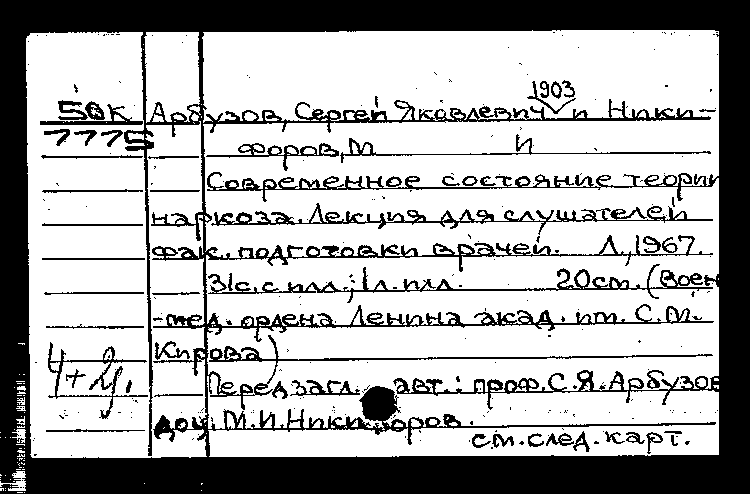 1903
50К Арбузов, Сергей Яковлевич и Ники-
7775 форов, М И
Современное состояние теории
наркоза. Лекция для слушателей
фак. подготовки врачей. Л., 1967.
31с. с илл.; 1л. илл. 20см. (Воен
-мед. ордена Ленина акад. им. С.М.
Кирова)
4+2у.
Перед загл. авт.: проф. С.Я. Арбузов
доц. М.И. Никифоров.
см. след. карт.